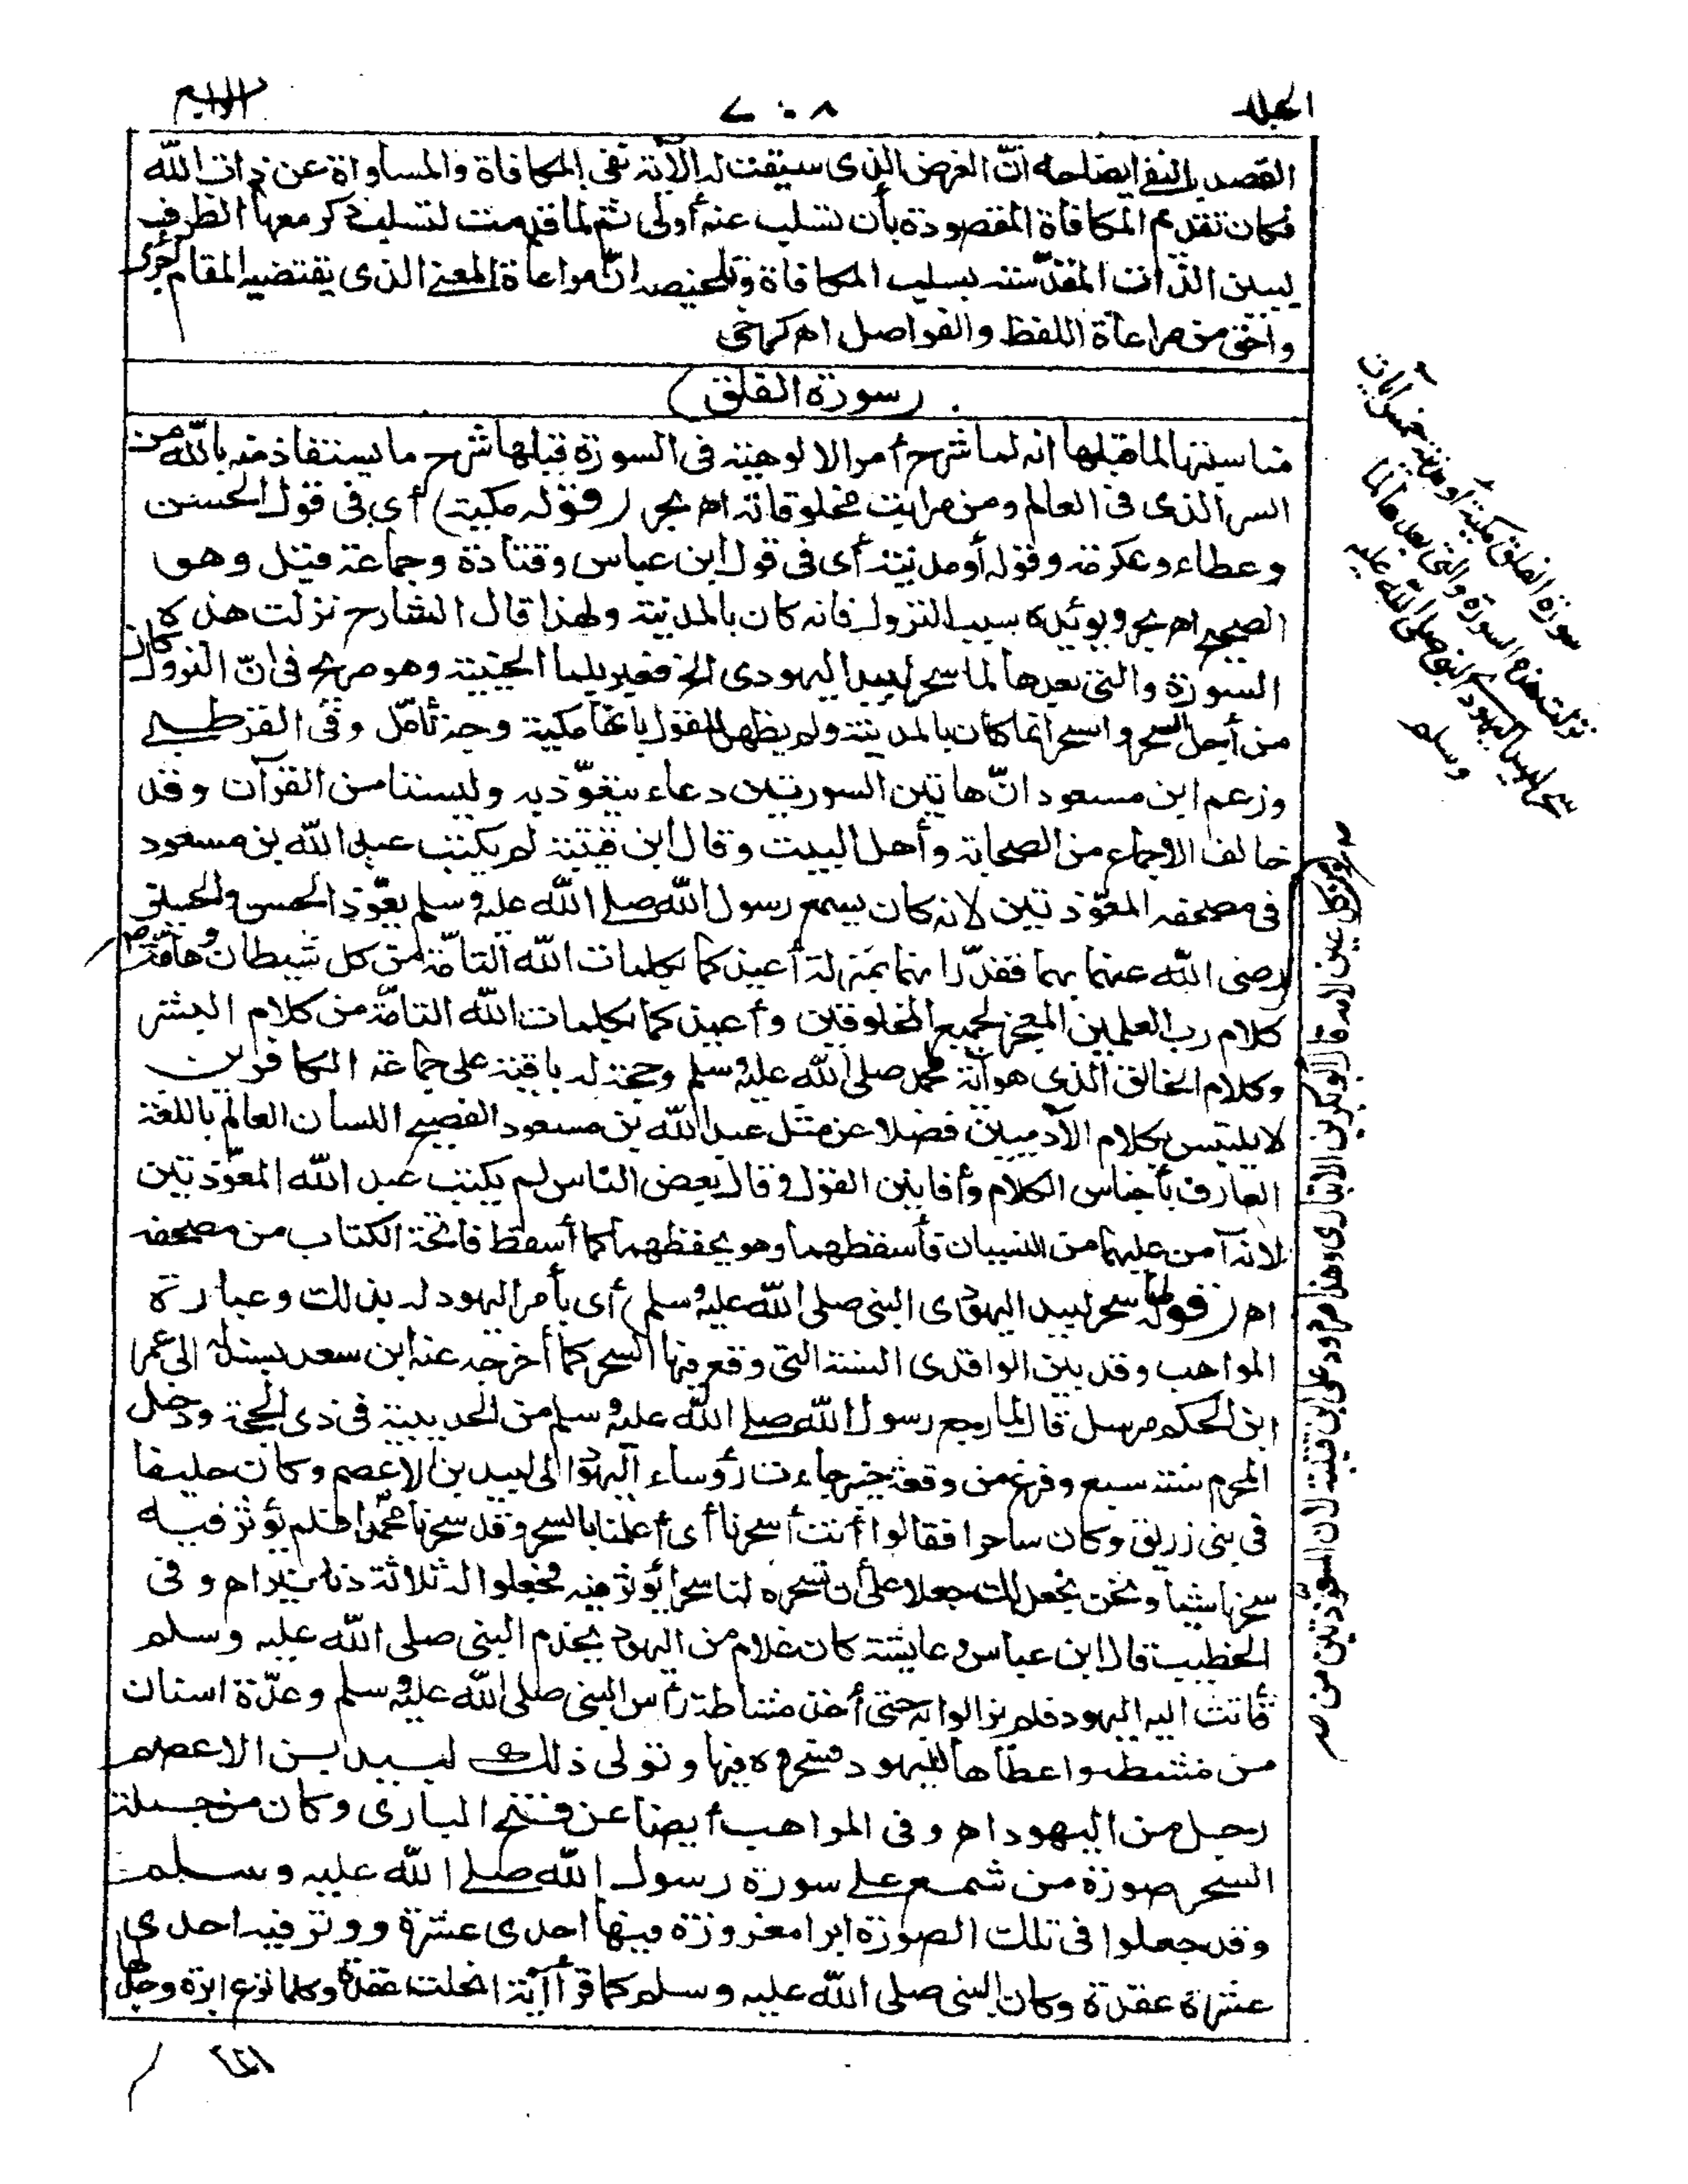 الجلد ٧٠٨ الرابع
القصد بالنفى ايضاحه انّ الغرض الذى سيقت له الآية نفى المكافاة والمساواة عن ذات الله
فكان تقديم المكافاة المقصودة بأن تسلب عنه أولى ثم لما قدمت لتسلب ذكر معها الظرف
ليبين الذات المقدّسة بسلب المكافاة وتلخيصه انّ مراعاة المعنى الذى يقتضيه المقام أحرى
وأحق من مراعاة اللفظ والفواصل اه كرخى
(سورة الفلق)
مناسبتها لما قبلها انه لما شرح أمر الالوهية فى السورة قبلها شرح ما يستفاذ منه بالله من
السر الذى فى العالم ومن مراتب مخلوقاته اه بحر (قوله مكية) أى فى قول الحسن
وعطاء وعكرمة وقوله أو مدنية أى فى قول ابن عباس وقتادة وجماعة قيل وهو
الصحيح اه بحر ويؤيده سبب النزول فانه كان بالمدينة ولهذا قال الشارح نزلت هذه
السورة والتى بعدها لما سحر لبيد اليهودى الخ فعبر بلما الحينية وهو صريح فى انّ النزول كان
من أجل السحر والسحر انما كان بالمدينة ولم يظهر للقول بانها مكية وجه تأمّل وفى القرطبى
وزعم ابن مسعود انّ هاتين السورتين دعاء يتعوّذ به وليستا من القرآن وقد
خالف الاجماع من الصحابة وأهل البيت وقال ابن قتيبة لم يكتب عبد الله بن مسعود
فى مصحفه المعوّذتين لانه كان يسمع رسول الله صلى الله عليه وسلم يعوّذ الحسن والحسين
رضى الله عنهما بهما فقدّر انهما بمنزلة أعيذكما بكلمات الله التامّة من كل شيطان وهامّة
كلام رب العلمين المعجز لجميع المخلوقين وأعيذكما بكلمات الله التامّة من كلام البشر
وكلام الخالق الذى هو آية محمد صلى الله عليه وسلم وحجة له باقية على جماعة الكافرين
لا يلتبس بكلام الآدميين فضلا عن مثل عبد الله بن مسعود الفصيح اللسان العالم باللغة
العارف بأجناس الكلام وأفانين القول وقال بعض الناس لم يكتب عبد الله المعوّذتين
لانه أمن عليهما من النسيان فأسقطهما وهو يحفظهما كما أسقط فاتحة الكتاب من مصحفه
اه (قوله لما سحر لبيد اليهودى النبى صلى الله عليه وسلم) أى بأمر اليهود له بذلك وعبارة
المواهب وقد بين الواقدى السنة التى وقع فيها السحر كما أخرجه عنه ابن سعد بسند له الى عمر
ابن الحكم مرسل قال لما رجع رسول الله صلى الله عليه وسلم من الحديبية فى ذى الحجة ودخل
المحرم سنة سبع وفرغ من وقعة خيبر جاءت رؤساء اليهود الى لبيد بن الاعصم وكان حليفا
فى بنى زريق وكان ساحرا فقالوا أنت أسحرنا أى أعلمنا بالسحر وقد سحرنا محمّدا فلم يؤثر فيه
سحرنا شيأ ونحن نجعل لك جعلا على أن تسحره لنا سحرا يؤثر فيه فجعلوا له ثلاثة دنانير اه وفى
الخطيب قال ابن عباس وعايشة كان غلام من اليهود يخدم النبى صلى الله عليه وسلم
فأتت اليه اليهود فلم يزالوا به حتى أخذ مشاطة رأس النبى صلى الله عليه وسلم وعدّة اسنان
من مشطه واعطاها لليهود فسحروه فيها وتولى ذلك لبيد بن الاعصم
رجل من اليهود اه وفى المواهب أيضا عن فتح البارى وكان من جملة
السحر صورة من شمع على سورة رسول الله صلى الله عليه وسلم
وقد جعلوا فى تلك الصورة ابرا مغروزة فيها احدى عشرة ووتر فيه احدى
عشرة عقدة وكان النبى صلى الله عليه وسلم كما قرأ آية انحلت عقدة وكلما نزع ابرة وجد لها
المًا
سورة الفلق مكية أو مدنية خمس آيات
نزلت هذه السورة والتى بعدها لما
سحر لبيد اليهودى النبى صلى الله عليه
وسلم
ومن كل عين لامّة قال أبو بكر بن الانبارى وهذا مردود على ابن قتيبة لان المعوّذتين من